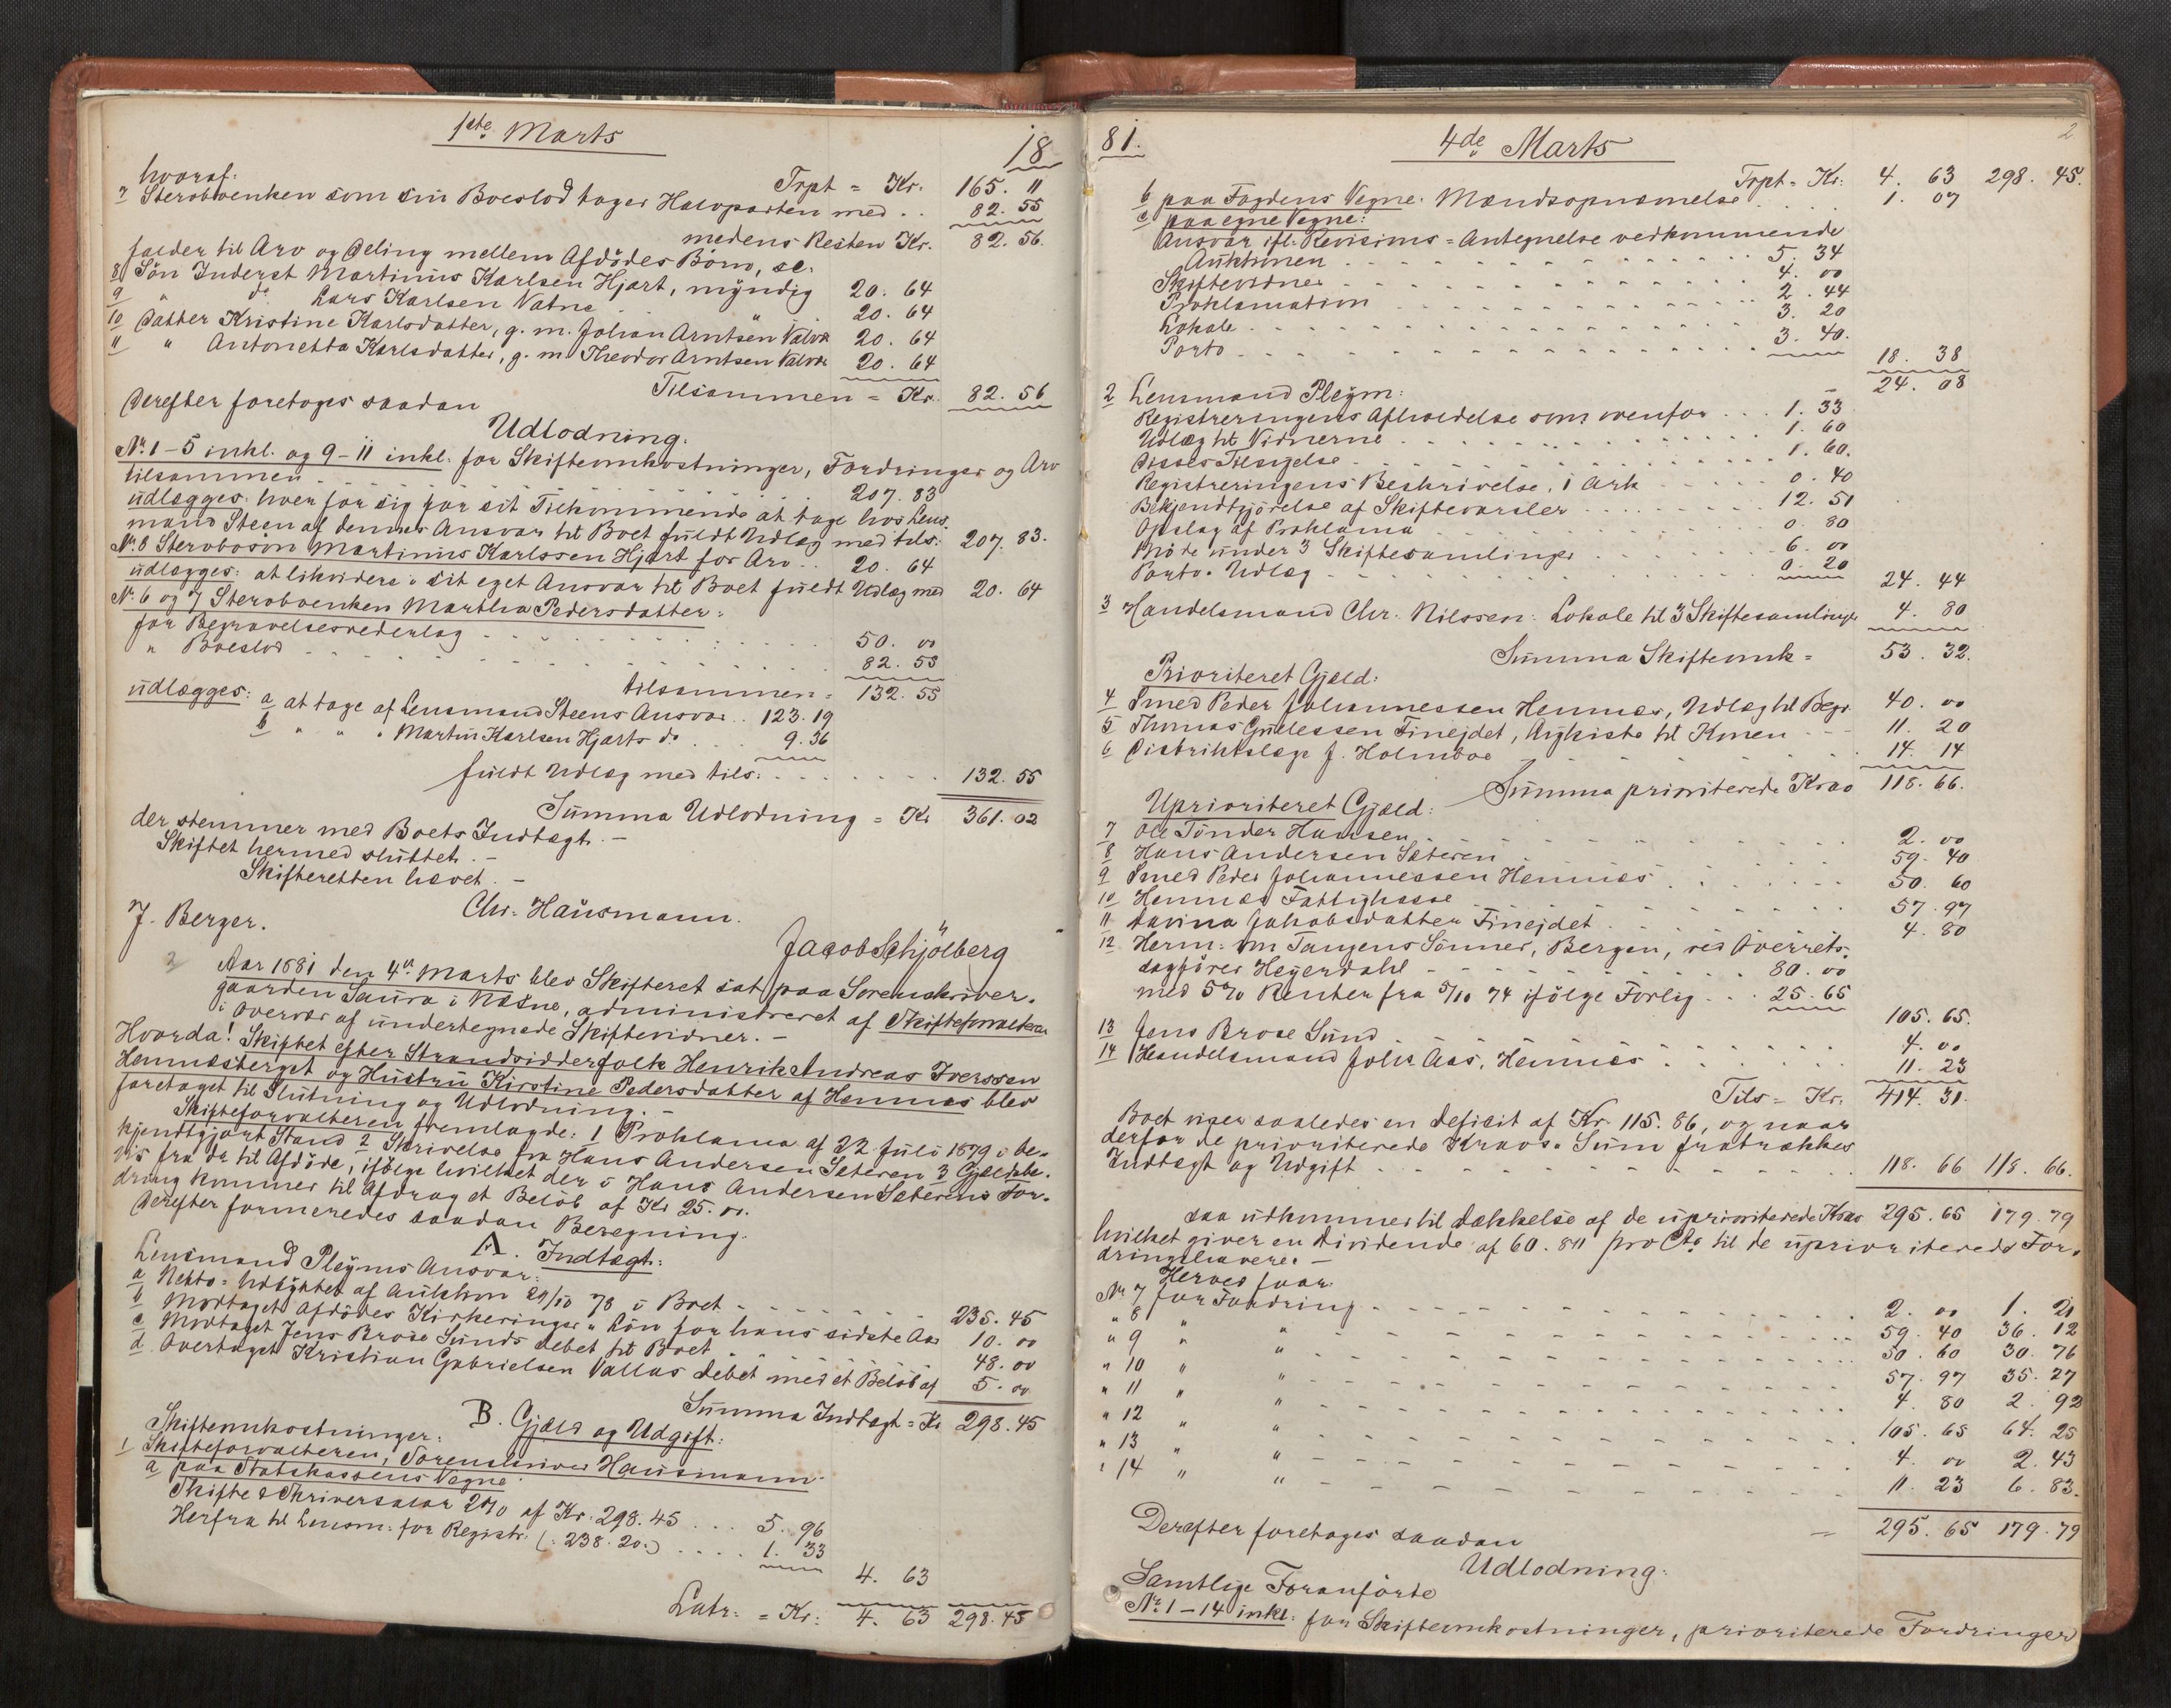 1ste Marts
18
hvoraf: Trpt = Kr. 165. 11
7 Sterboenken som sin Boeslod tager Halvparten med . . 82. 55
medens Resten Kr. 82. 56.
falder til Arv og Deling mellem Afdødes Børn, sc.
8 Søn Inderst Martinus Karlsen Hjart, myndig 20. 64
9 " do Lars Karlsen Vatne " 20. 64
10 Datter Kristine Karlsdatter, g. m. Johan Arntsen Valvær 20. 64
11 " Antonetta Karlsdatter, g. m. Theodor Arntsen Valvær 20. 64
Tilsammen = Kr. 82. 56
Derefter foretoges saadan
Udlodning:
No. 1 – 5 inkl. og 9 – 11 inkl. for Skifteomkostninger, Fordringer og Arv
tilsammen . . . 207. 83
udlægges: hver for sig for sit Tilkommende at tage hos Lens-
mand Steen af dennes Ansvar til Boet fuldt Udlæg med tils: 207. 83.
No. 8 Stervbosøn Martinus Karlssen Hjart for Arv . . 20. 64
udlægges: at likvidere i sit eget Ansvar til Boet fuldt Udlæg med 20. 64
No. 6 og 7 Sterboenken Martha Pedersdatter:
for Begravelsesvederlag . . . 50. 00
" Boeslod . . . 82. 55
tilsammen = 132. 55
udlægges: a at tage af Lensmand Steens Ansvar . . 123. 19
b " " " Martin Karlsen Hjarts do . . . 9. 36
fuldt Udlæg med tils: . . . 132. 55
Summa Udlodning = Kr 361. 02
der stemmer med Boets Indtægt. –
Skiftet hermed sluttet. –
Skifteretten hævet. –
Chr. Hausmann.
J. Berger.
Jacob Schjölberg
2 Aar 1881 den 4de Marts blev Skifteret sat paa Sorenskriver-
gaarden Saura i Næsne, administreret af Skifteforvalteren
i Overvær af undertegnede Skiftevidner. –
Hvorda! Skiftet efter Strandsidderfolk Henrik Andreas Iverssen
Hemnæsberget og Hustru Kirstine Pedersdatter af Hemnæs blev
foretaget til Slutning og Udlodning. –
Skifteforvalteren fremlagde: 1 Proklama af 22 Juli 1879 i be-
kjendtgjort Stand 2 Skrivelse fra Hans Andersen Sæteren 3 Gjeldsbe-
vis fra do til Afdöde, ifölge hvilket der i Hans Andersen Sæterens For-
dring kommer til Afdrag et Belöb af Kr 25. 00.
Derefter formeredes saadan Beregning:
A. Indtægt:
Lensmand Pleyms Ansvar:
a Netto-Udbyttet af Auktion 29/10 78 i Boet . . . 235. 45
b Modtaget Afdödes Kirkeringer-Lön for hans sidste Aar 10. 00
c Modtaget Jens Brose Sunds Debet til Boet . . . 48. 00
d. Overtaget Kristian Gabrielsen Vallas Debet med et Belöb af 5. 00
Summa Indtægt = Kr 298. 45
B. Gjæld og Udgift:
Skifteomkostninger:
1 Skifteforvalteren, Sorenskriver Hausmann
a paa Statskassens Vegne:
Skifte & Skriversalær 2% af Kr. 298. 45 . . . 5. 96
Herfra til Lensm. for Registr. (: 238. 20 :) . . . . 1. 33
4. 63
Latr. = Kr: 4. 63 298. 45
81.
4de Marts
2
Trpt = Kr: 4. 63 298. 45.
b paa Fogdens Vegne: Mændsopnævnelse . . . 1. 07
c paa egne Vegne:
Ansvar ifl. Revisions-Antegnelse vedkommende
Auktionen . . . 5. 34
Skiftevidner . . . 4. 00
Proklamation . . . 2. 44
Lokale . . . 3. 20
Porto . . . 3. 40.
18. 38
24. 08
2 Lensmand Pleym:
Registreringens Afholdelse som ovenfor . . . 1. 33
Udlæg til Vidnerne . . . 1. 60
Disses Tilsigelse . . . 1. 60.
Registreringens Beskrivelse, 1 Ark . . . 0. 40
Bekjendtgjörelse af Skiftevarsler . . . 12. 51
Opslag af Proklama . . . 0. 80
Möde under 3 Skiftesamlinger . . . 6. 00
Porto-Udlæg . . . 0. 20
24. 44
3 Handelsmand Chr. Nilssen: Lokale til 3 Skiftesamlinger 4. 80
Summa Skifteomk = 53. 32.
Prioriteret Gjæld:
4 Smed Peder Johannessen Hemnæs, Udlæg til Begr. 40. 00
5 Thomas Gullessen Finejdet, Ligkiste til Konen . . . 11. 20
6 Distriktslæge J. Holmboe . . . 14. 14
Summa prioriterede Krav 118. 66.
Uprioriteret Gjæld:
7 Ole Tönder Hansen . . . 2. 00
8 Hans Andersen Sæteren . . . 59. 40
9 Smed Peder Johannessen Hemnæs . . . 50. 60
10 Hemnæs Fattigkasse . . . 57. 97
11 Lavina Jakobsdatter Finejdet . . . 4. 80
12 Herm: om Tangens Sönner, Bergen, ved Overrets-
sagförer Heyerdahl . . . 80. 00
med 5% Renter fra 5/10 74 ifölge Forlig . . . 25. 65
105. 65.
13 Jens Brose Sund . . . 4. 00
14 Handelsmand Johs Aas, Hemnæs . . . 11. 23
Tils = Kr. 414. 31.
Boet viser saaledes en Deficit af Kr. 115. 86, og naar
derfor de prioriterede Kravs-Sum fratrækkes
Indtægt og Udgift . . . 118. 66 118. 66.
saa udkommer til Dækkelse af de uprioriterede Krav 295. 65 179. 79
hvilket giver en Dividende af 60. 811 pro Cto til de uprioriterede For-
dringshavere. –
Herved faar
No. 7 for Fordring . . . 2. 00 1. 21
" 8 " " . . . 59. 40 36. 12
" 9 " " . . . 50. 60 30. 76
" 10 " " . . . 57. 97 35. 27
" 11 " " . . . 4. 80 2. 92
" 12 " " . . . 105. 65 64. 25
" 13 " " . . . 4. 00 2. 43
" 14 " " . . . 11. 23 6. 83.
295. 65 179. 79
Derefter foretoges saadan
Udlodning:
Samtlige Foranførte
No. 1 – 14 inkl. for Skifteomkostninger, prioriterede Fordringer